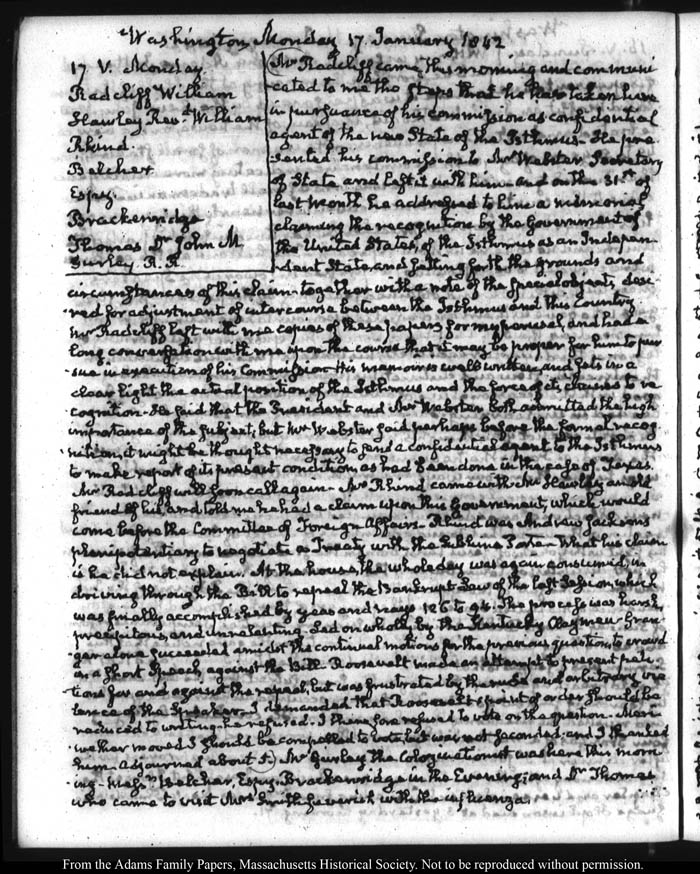 Washington, Monday 17. January 1842
17 V. Monday
Radcliff William
Hawley Rev.d William
Rhind.
Belcher
Espy.
Brackenridge
Thomas Dr John M
Gurley R. R.
Mr Radcliff came this morning and communi
cated to me the steps that he has taken here
in pursuance of his commission as confidential
agent of the new State of the Isthmus. He pre
sented his commission to Mr Webster Secretary
of State and left it with him and on the 31st of
last Month he addressed to him a memorial
claiming the recognition by the Government of
the United States, of the Isthmus as an Indepen
dent State, and setting forth the grounds and
circumstances of this claim together with a note of the special objects, desi
red for adjustment of intercourse between the Isthmus and this Country
Mr Radcliff left with me copies of these papers for my perusal, and had a
long conversation with me upon the course that it may be proper for him to pur
sue in execution of his Commission. His memoir is well written and sets in a
clear light the actual position of the Isthmus and the force of its claims to re
cognition. He said that the President and Mr Webster both admitted the high
importance of the subject, but Mr Webster said perhaps before the formal recog
nition, it might be thought necessary to send a confidential agent to the Isthmus
to make report of its present condition, as had been done in the case of Texas.
Mr Radcliff will soon call again. Mr Rhind came with Mr Hawley an old
friend of his, and told me he had a claim upon this Government, which would
come before the Committee of Foreign Affairs. Rhind was Andrew Jackson's
plenipotentiary to negotiate a Treaty with the Sublime Porte. What his claim
is he did not explain. At the house, the whole day was again consumed, in
driving through the Bill to repeal the Bankrupt Law of the last Session, which
was finally accomplished by yeas and nays 126 to 94. The process was harsh,
precipitous, and unrelenting. Led on wholly by the Kentucky Claymen. Gran
ger alone succeeded amidst the continual motions for the previous question, to crowd
in a short Speech against the Bill. Roosevelt made an attempt to present peti
tions for and against the repeal, but was frustrated by the rude and arbitrary vio
lence of the Speaker. I demanded that Roosevelt's point of order should be
reduced to writing. he refused. I therefore refused to vote on the question. Meri
wether moved I should be compelled to vote, but was not seconded, and I thanked
him. Adjourned about 5. Mr Gurley the Colonizationist was here this morn
ing. Mess.rs Belcher, Espy, Brackenridge in the Evening; and Dr Thomas
who came to visit Mrs Smith feverish with the influenza.
From the Adams Family Papers, Massachusetts Historical Society. Not to be reproduced without permission.